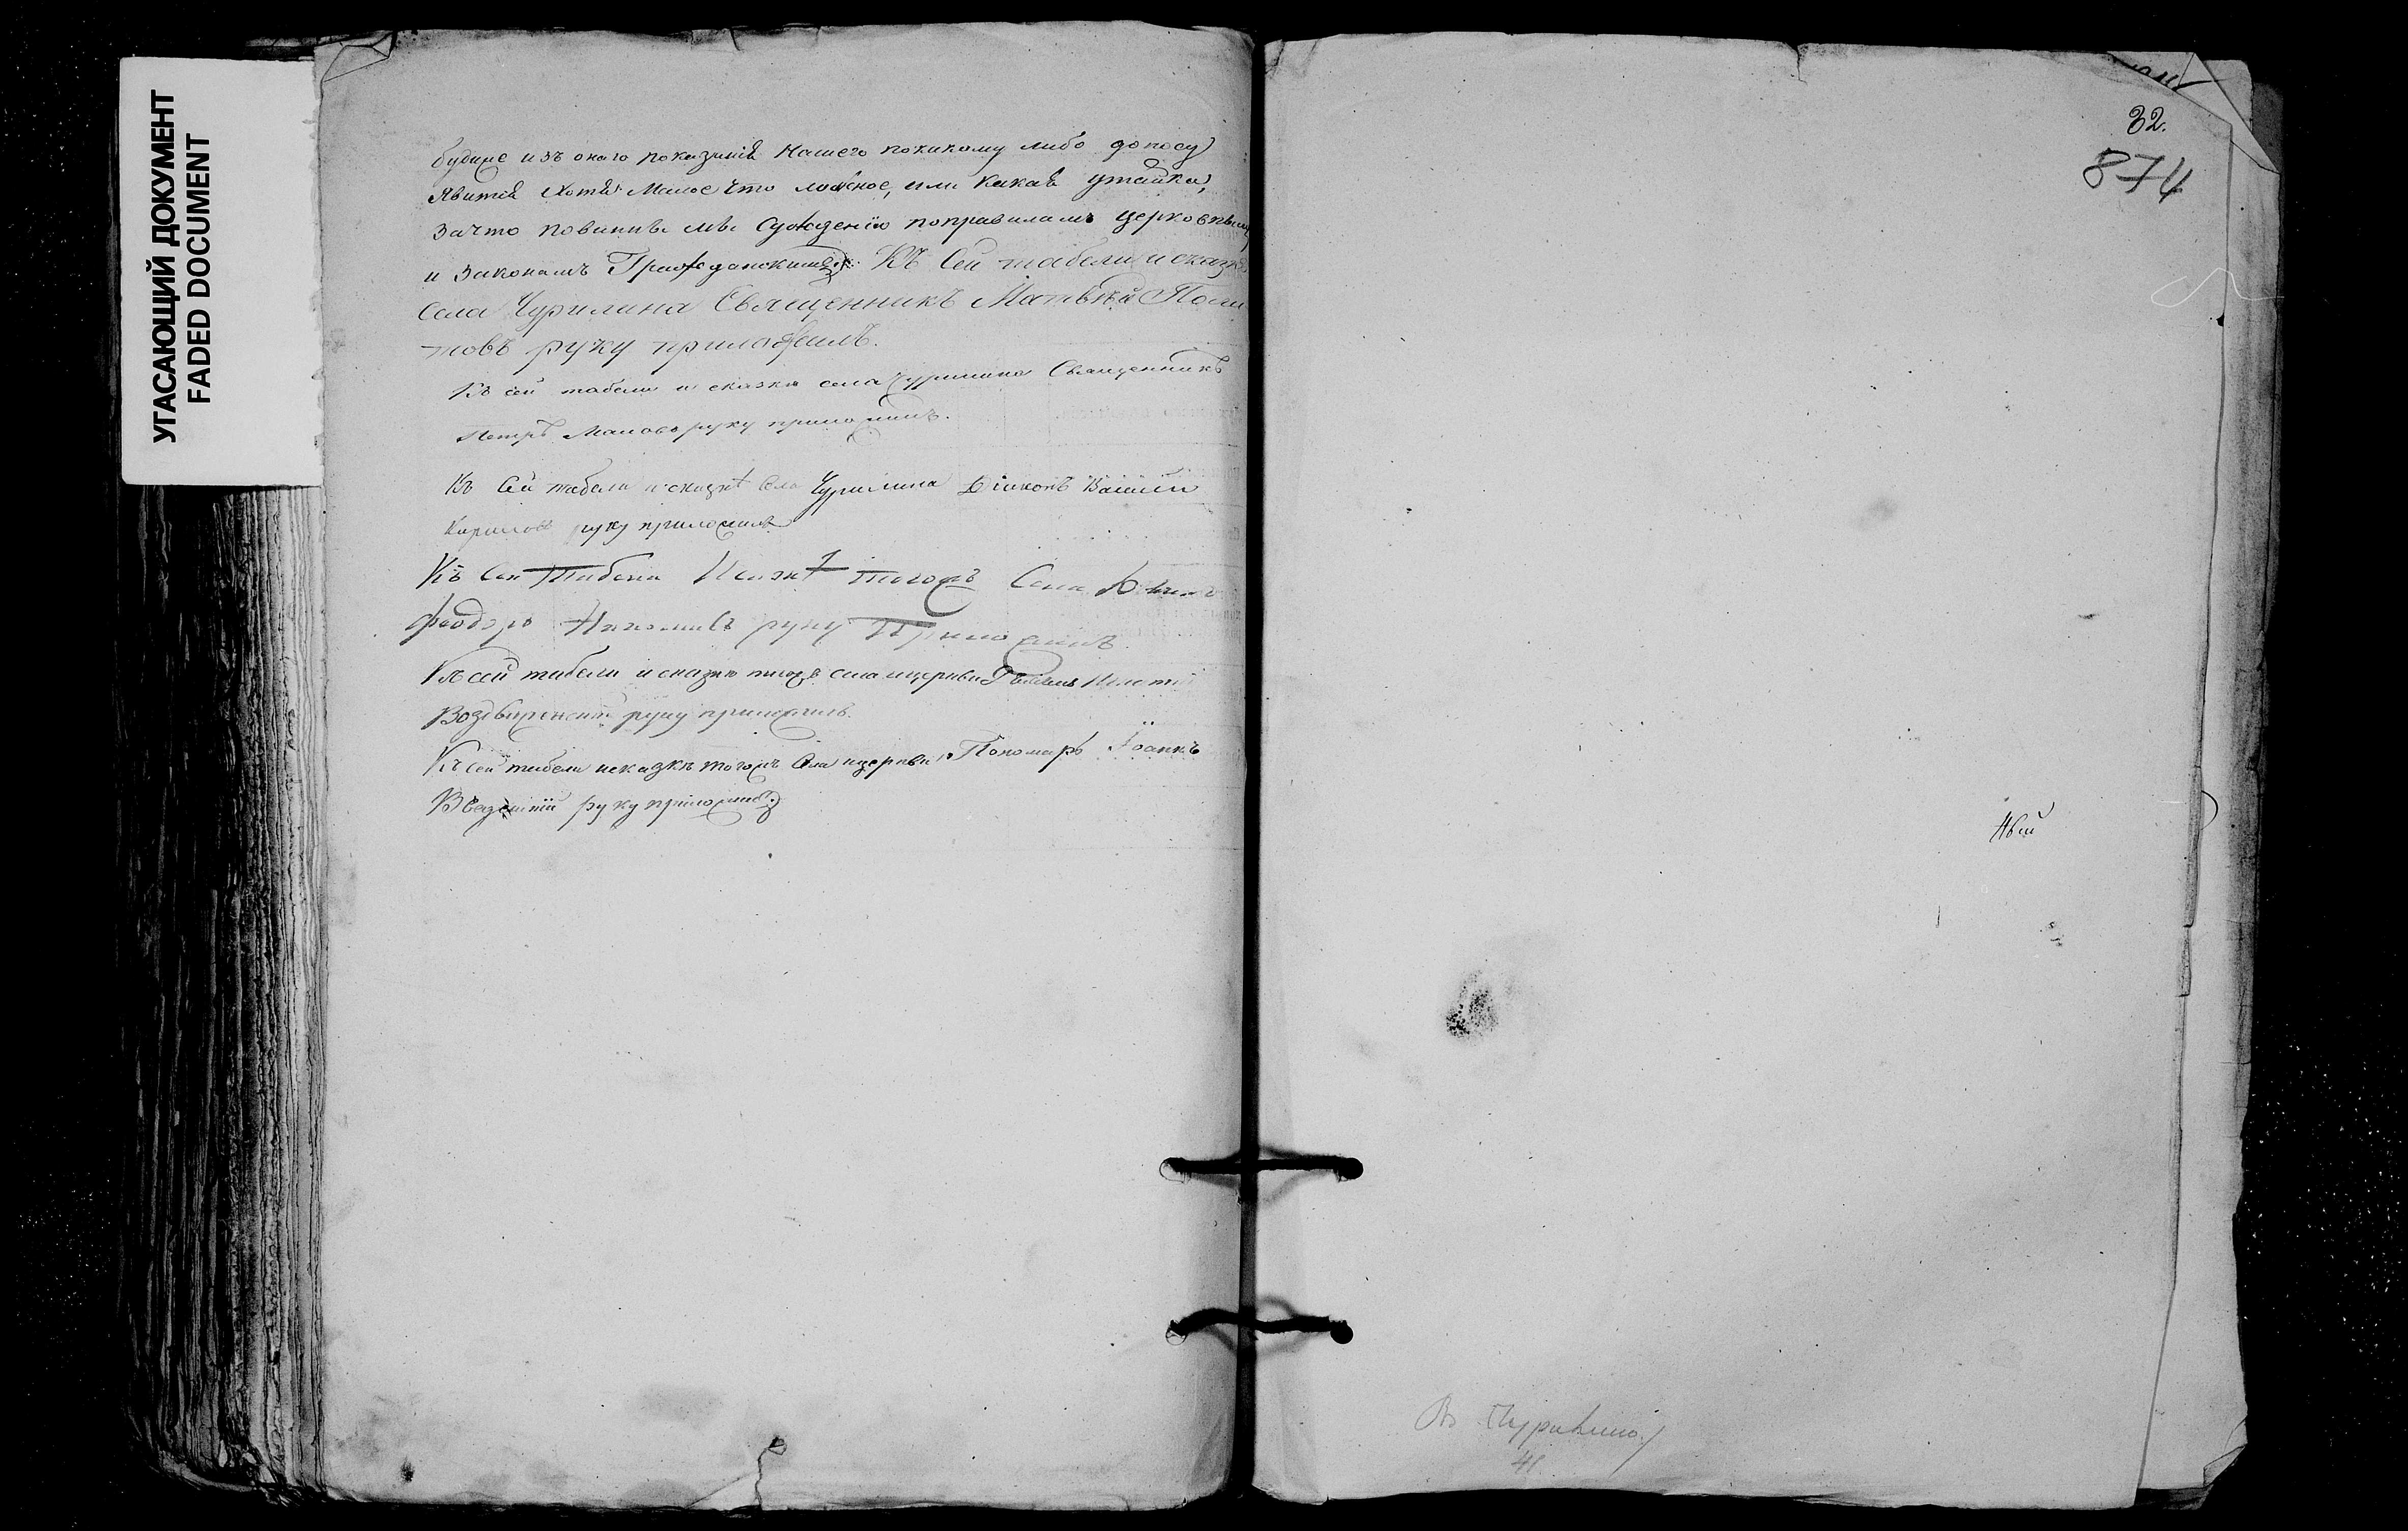 УГАСАЮЩИЙ ДОКУМЕНТ
FADED DOCUMENT
будже изъ онаго показанія нашего покакому либо доносу
явится хотя малое что ложное, или какая утайка,
зачто повинны мы сужденію поправиламъ церковным
и законамъ Гражданскимъ. Къ сей табели и сказкѣ
села Чурилина Священникъ Матвѣй Поли
товъ руку приложилъ.
Къ сей табели и сказкѣ села Чурилина Священникъ
Петръ руку приложилъ.
Къ сей табели и сказкѣ села Чурилина Діаконъ Василій
Кириловъ руку приложилъ
Къ сей табели и сказкѣ тогожъ села
Феодоръ руку приложилъ.
Къ сей табели и сказкѣ тогожъ села и церкви
Воздвиженскій руку приложилъ.
Къ сей табели и сказкѣ тогожъ села и церкви Пономарь Іоаннъ
руку приложилъ
32.
874
41